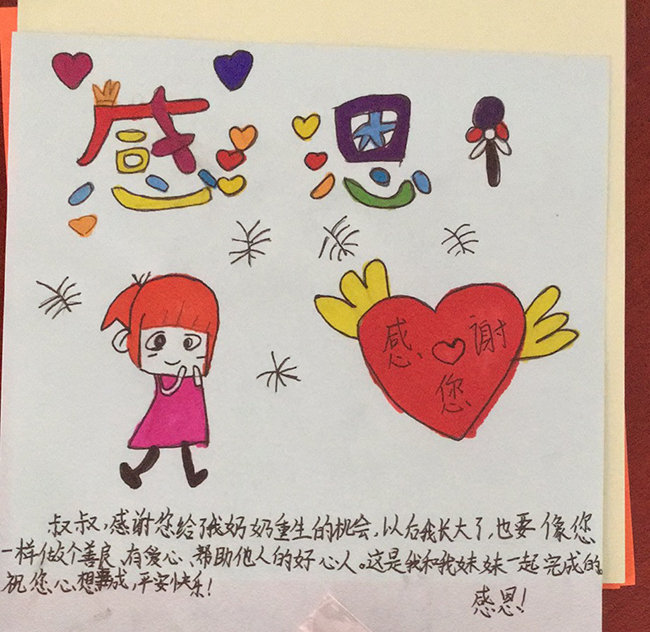 感恩
感谢
您
叔叔,感谢您给了我奶奶重生的机会,以后我长大了,也要像您
一样做个善良、有爱心、帮助他人的好心人。这是我和我妹妹一起完成的
祝您心想成,平安快乐!
感恩!